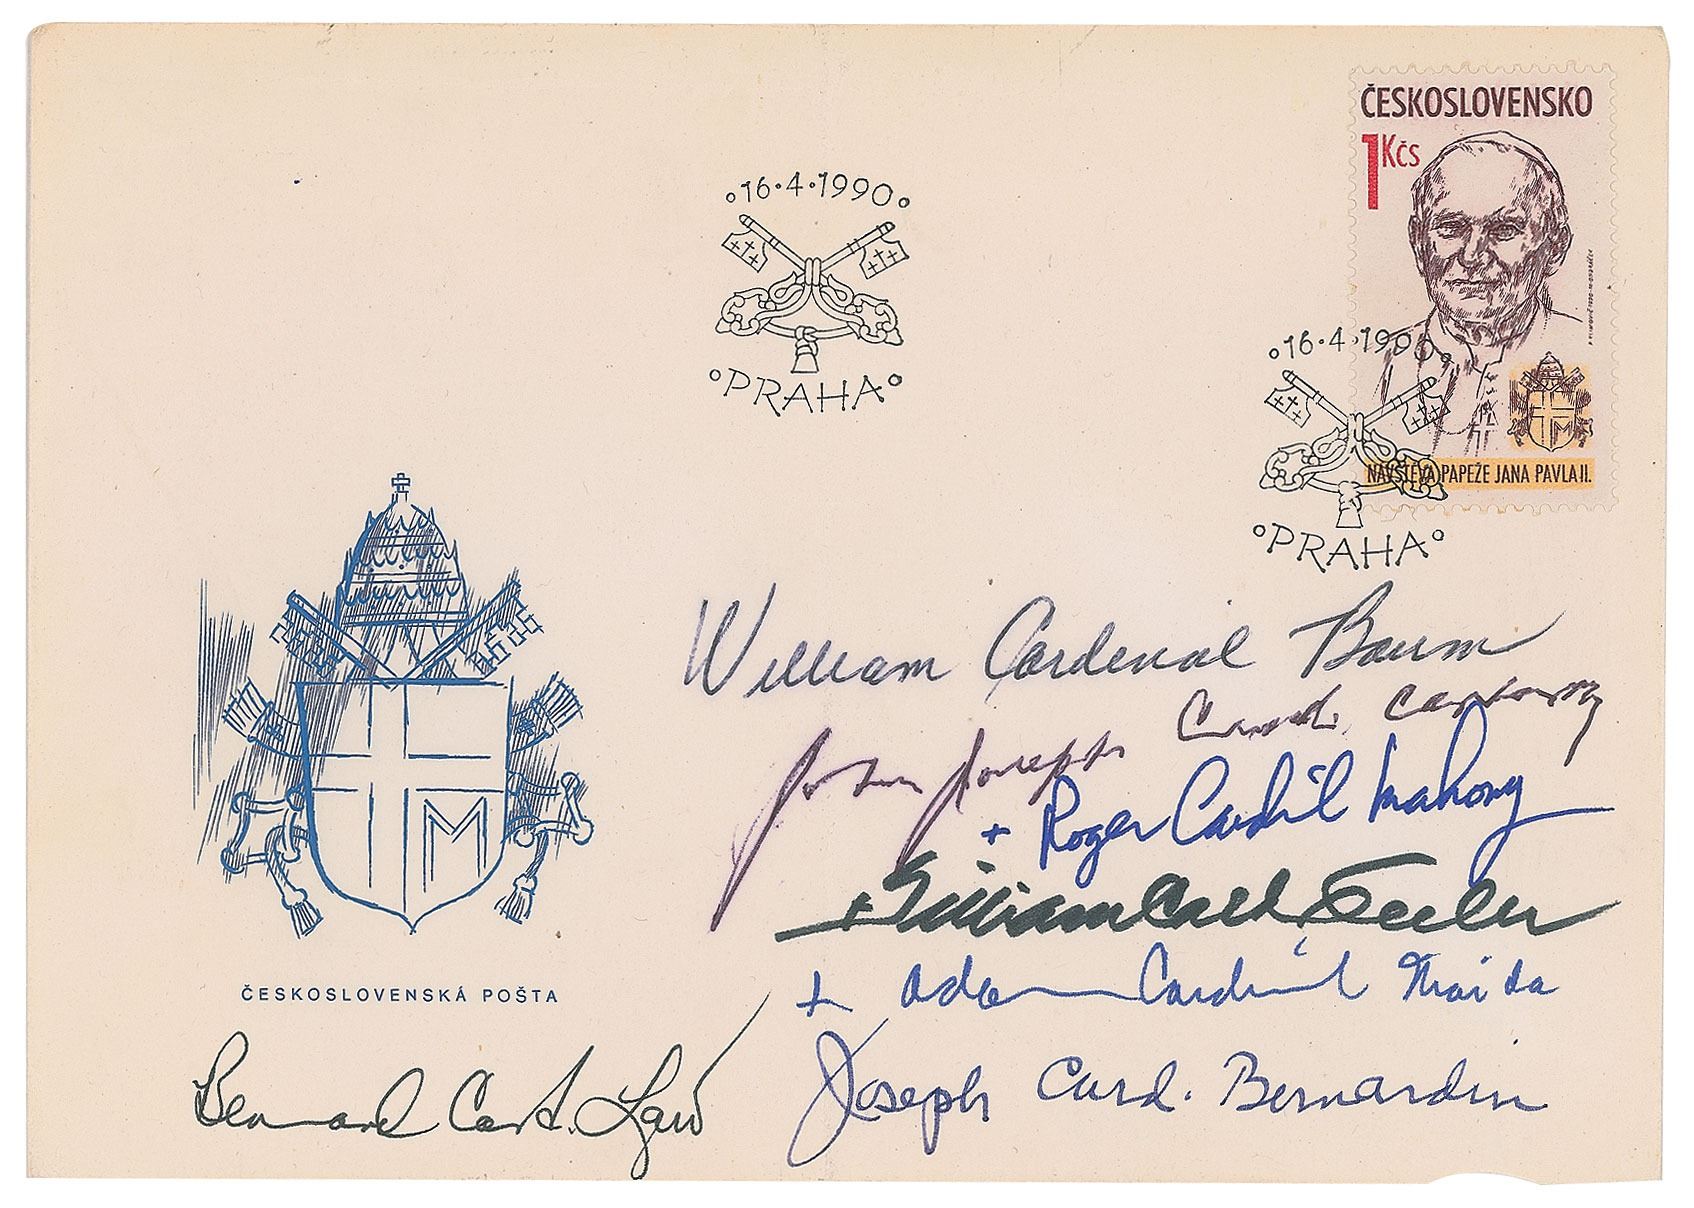 ČESKOSLOVENSKO
1 Kčs
°16·4·1990°
°PRAHA°
°16·4·1990°
NÁVŠTĚVA PAPEŽE JANA PAVLA II.
°PRAHA°
M
M
William Cardinal Baum
John Joseph Card. Carberry
+ Roger Card'l Mahony
+ William Card. Keeler
+ Adam Cardinal Maida
ČESKOSLOVENSKÁ POŠTA
Joseph Card. Bernardin
Bernard Card. Law